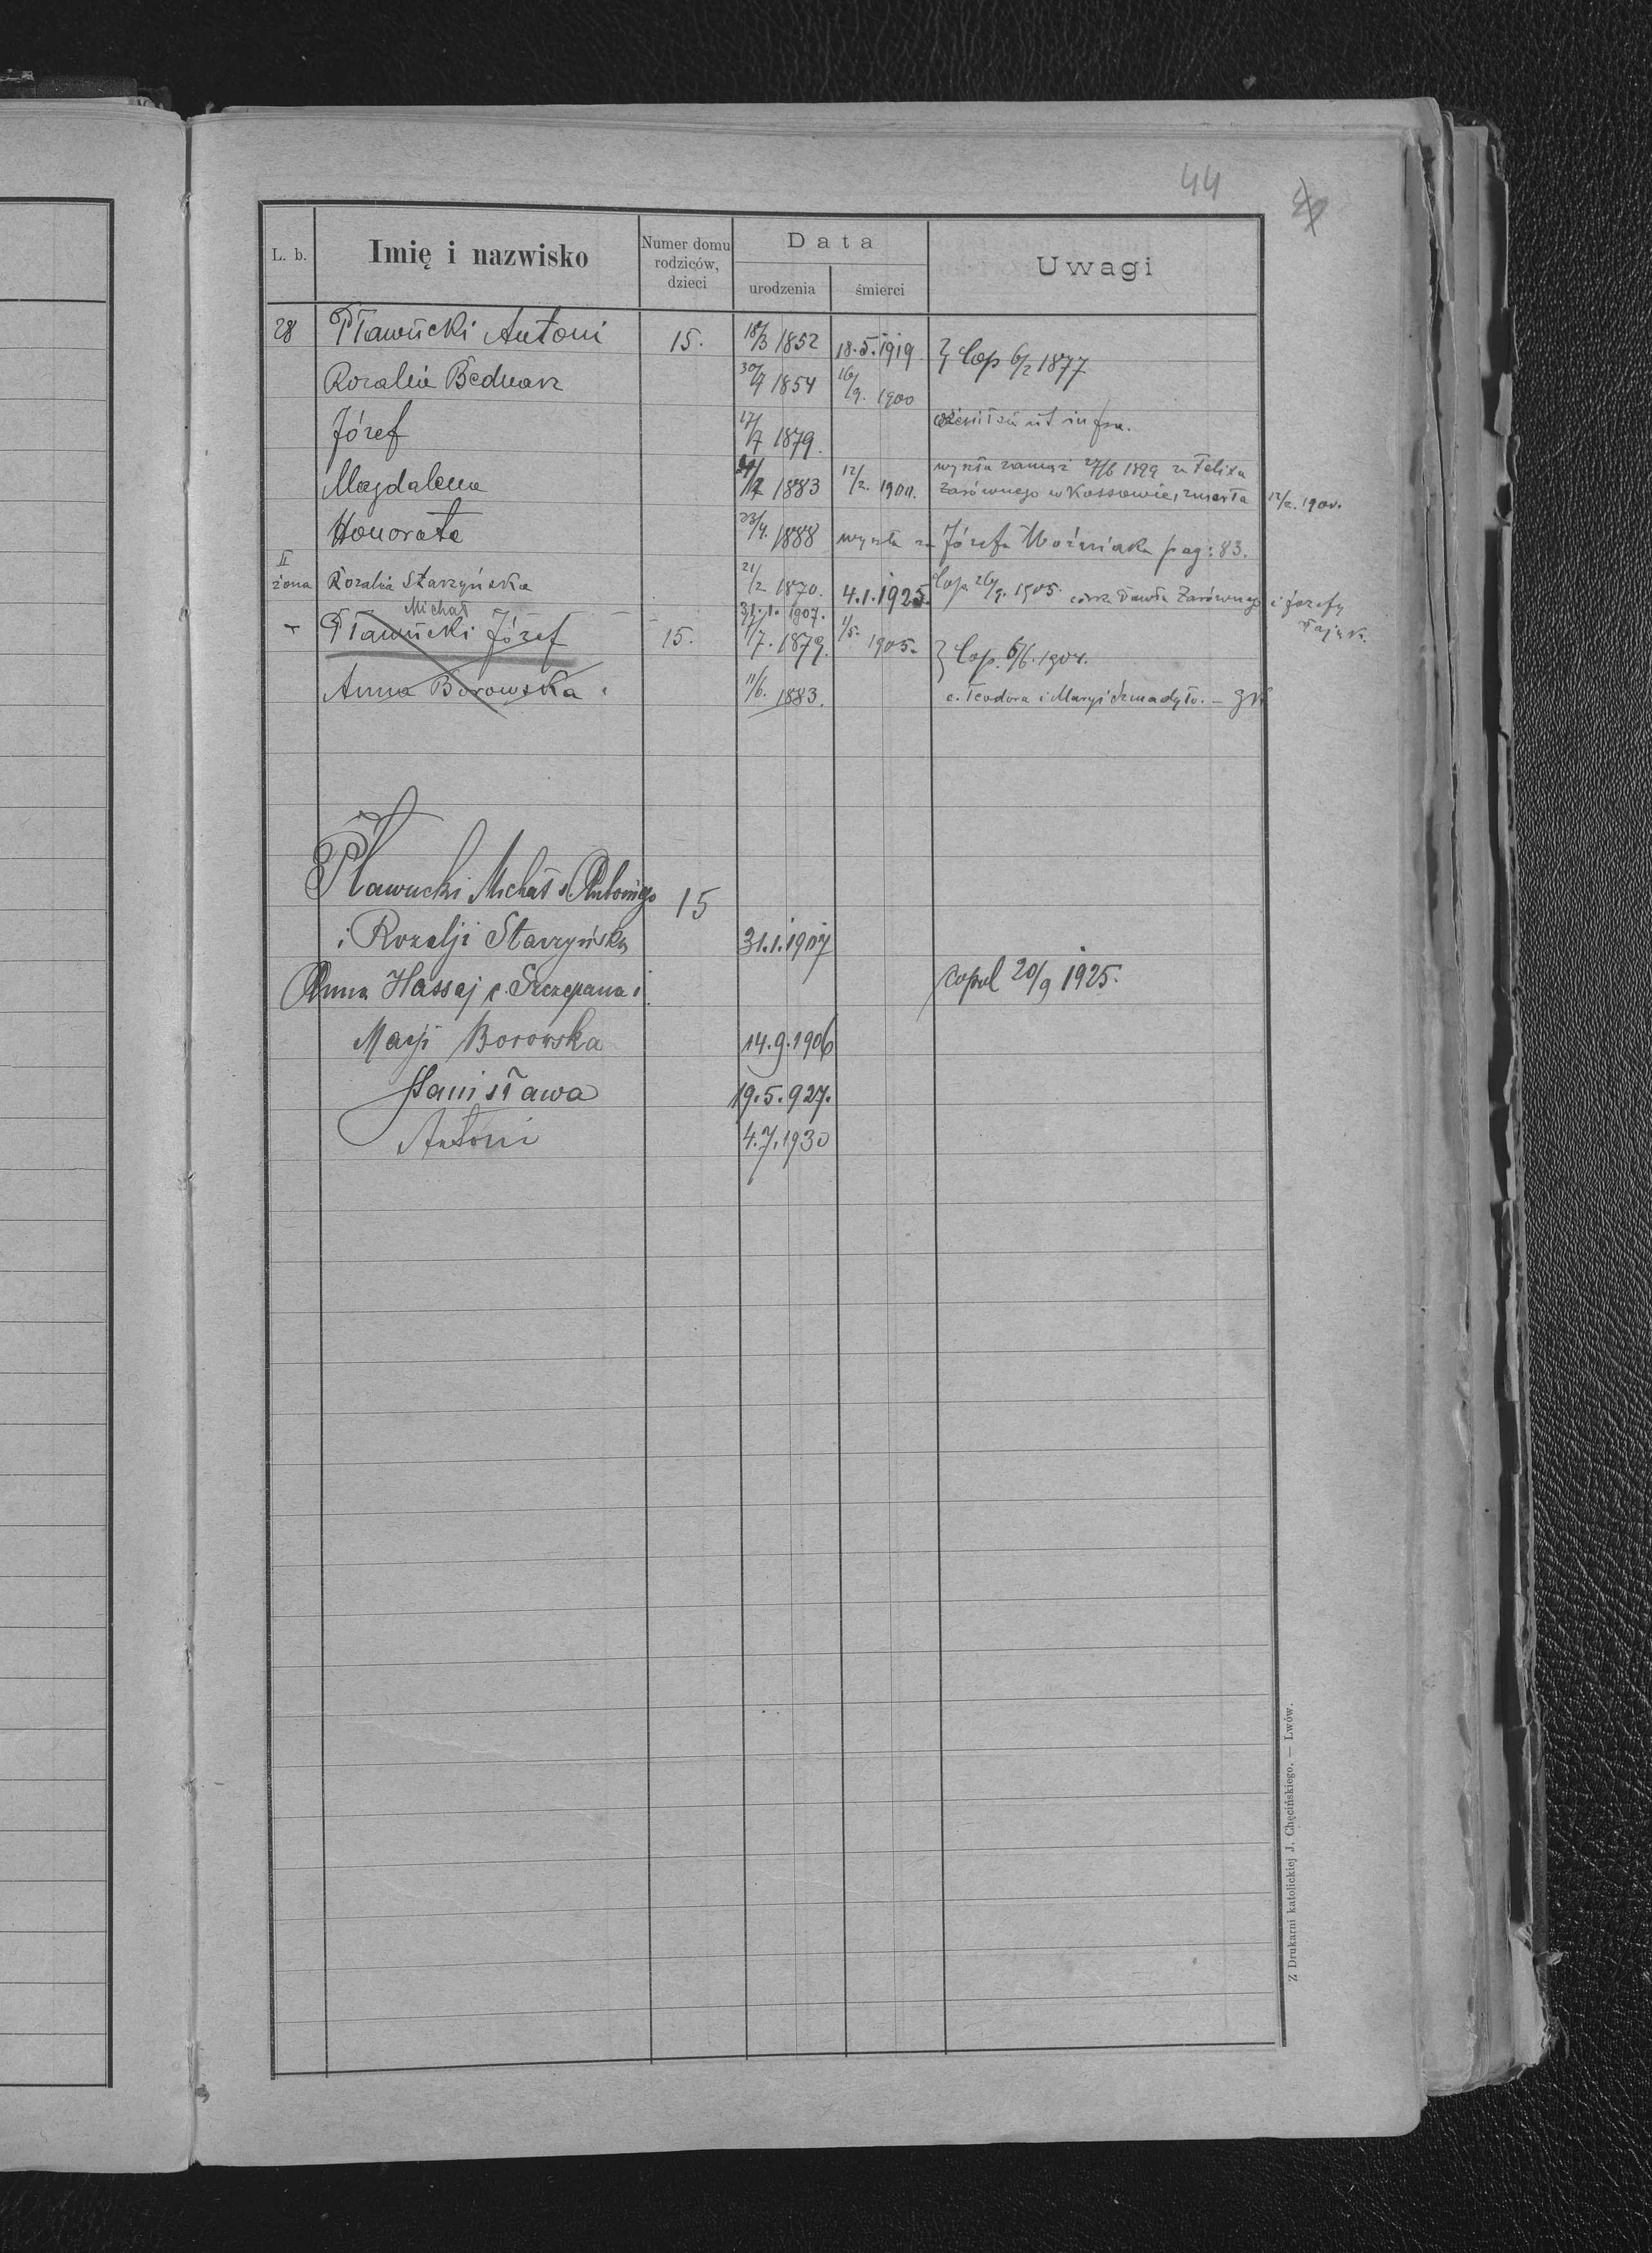 44
L. b. Imię i nazwisko Numer domu rodziców, dzieci Data urodzenia śmierci Uwagi
28 Pławucki Antoni 15. 18/3 1852 18.5.1919 } Cop 6/2 1877
Rozalia Bednarz 30/7 1854 16/9. 1900
Józef 17/7 1879. ut infra.
Magdalena 1883 12/2. 1900. wyszła zamąż 27/6 1899 za Felixa
Zarównego w Kossowie, zmarła 12/2. 1900.
Honorata 23/4. 1888 wyszła za Józefa Woźniaka pag: 83.
II
żona Rozalia Starzyńska 21/2 1870. 4.1.1925. Cop. 26/9. 1905. córka Pawła Zarównego i Józefy
Michał 31.1. 1907.
Pławucki Józef 15. 17/7. 1879. 1/5. 1905. } Cop. 6/6. 1904.
Anna Borowska 11/6. 1883. c. Teodora i Maryi Szmadyło.
Pławucki Michał s. Antoniego 15
i Rozalji Starzyńska 31.1.1907
Anna Hassaj c. Szczepana i copul 20/9 1925.
Marji Borowska 14.9.1906
Stanisława 19.5.927.
Antoni 4.7.1930
Z Drukarni katolickiej J. Chęcińskiego. — Lwów.